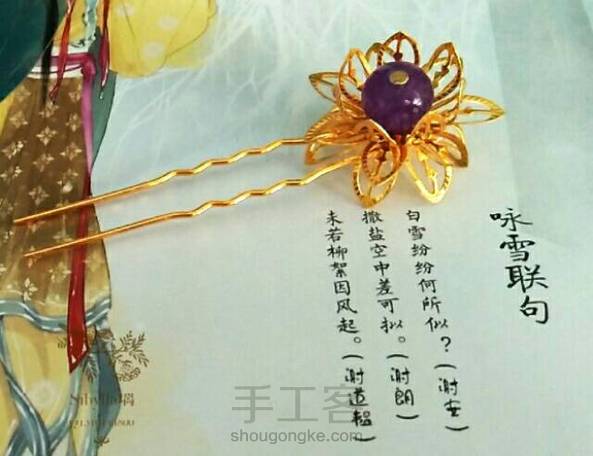 咏雪联句
白雪纷纷何所似?(谢安)
撒盐空中差可拟。(谢朗)
未若柳絮因风起。(谢道韫)
手工客
shougongke.com